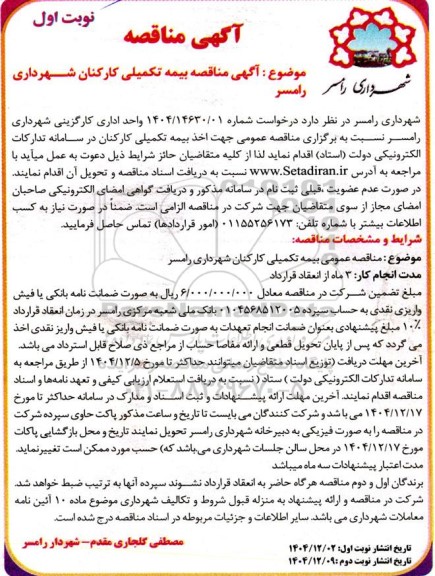 نوبت اول
آگهی مناقصه
شهرداری رامسر
موضوع : آگهی مناقصه بیمه تکمیلی کارکنان شهرداری
رامسر
شهرداری رامسر در نظر دارد درخواست شماره ۱۴۰۴/۱۴۶۳۰/۰۱ واحد اداری کارگزینی شهرداری
رامسر نسبت به برگزاری مناقصه عمومی جهت اخذ بیمه تکمیلی کارکنان در سامانه تدارکات
الکترونیکی دولت (ستاد) اقدام نماید لذا از کلیه متقاضیان حائز شرایط ذیل دعوت به عمل میآید با
مراجعه به آدرس www.Setadiran.ir نسبت به دریافت اسناد مناقصه و تحویل آن اقدام نمایند.
در صورت عدم عضویت ،قبلی ثبت نام در سامانه مذکور و دریافت گواهی امضای الکترونیکی صاحبان
امضای مجاز از سوی متقاضیان جهت شرکت در مناقصه الزامی است. ضمناً در صورت نیاز به کسب
اطلاعات بیشتر با شماره تلفن: ۰۱۱۵۵۲۵۶۱۷۳ (امور قراردادها) تماس حاصل فرمایید.
شرایط و مشخصات مناقصه:
موضوع : مناقصه عمومی بیمه تکمیلی کارکنان شهرداری رامسر
مدت انجام کار: ۳ ماه از انعقاد قرارداد
مبلغ تضمین شرکت در مناقصه معادل ۶/۰۰۰/۰۰۰/۰۰۰ ریال به صورت ضمانت نامه بانکی یا فیش
واریزی نقدی به حساب سپرده ۰۱۰۴۵۶۸۵۱۲۰۰۵ بانک ملی شعبه مرکزی رامسر در زمان انعقاد قرارداد
۱۰٪ مبلغ پیشنهادی بعنوان ضمانت انجام تعهدات به صورت ضمانت نامه بانکی یا فیش واریز نقدی اخذ
می گردد که پس از پایان تحویل قطعی و ارائه مفاصا حساب از مراجع ذی صلاح قابل استرداد می باشد.
آخرین مهلت دریافت (توزیع) اسناد ،متقاضیان میتوانند حداکثر تا مورخ ۱۴۰۴/۱۲/۵ از طریق مراجعه به
سامانه تدارکات الکترونیکی دولت ( ستاد ) نسبت به دریافت استعلام ارزیابی کیفی و تعهد نامه‌ها و اسناد
مناقصه اقدام نمایند. آخرین مهلت ارائه پیشنهادات و ثبت اسناد و مدارک در سامانه حداکثر تا مورخ
۱۴۰۴/۱۲/۱۷ می باشد و شرکت کنندگان می بایست تا تاریخ و ساعت مذکور پاکت حاوی سپرده شرکت
در مناقصه را به صورت فیزیکی به دبیرخانه شهرداری رامسر تحویل نمایند تاریخ و محل بازگشایی پاکات
مورخ ۱۴۰۴/۱۲/۱۷ در محل سالن جلسات شهرداری می‌باشد که) حسب مورد ممکن است تغییرنماید.
مدت اعتبار پیشنهادات سه ماه میباشد
برندگان اول و دوم مناقصه هرگاه حاضر به انعقاد قرارداد نشوند سپرده آنها به ترتیب ضبط خواهد شد.
شرکت در مناقصه و ارائه پیشنهاد به منزله قبول شروط و تکالیف شهرداری موضوع ماده ۱۰ آئین نامه
معاملات شهرداری می باشد. سایر اطلاعات و جزئیات مربوطه در اسناد مناقصه درج شده است.
مصطفی گلجاری مقدم- شهردار رامسر
تاریخ انتشار نوبت اول: ۱۴۰۴/۱۲/۰۲
تاریخ انتشار نوبت دوم :۱۴۰۴/۱۲/۰۹